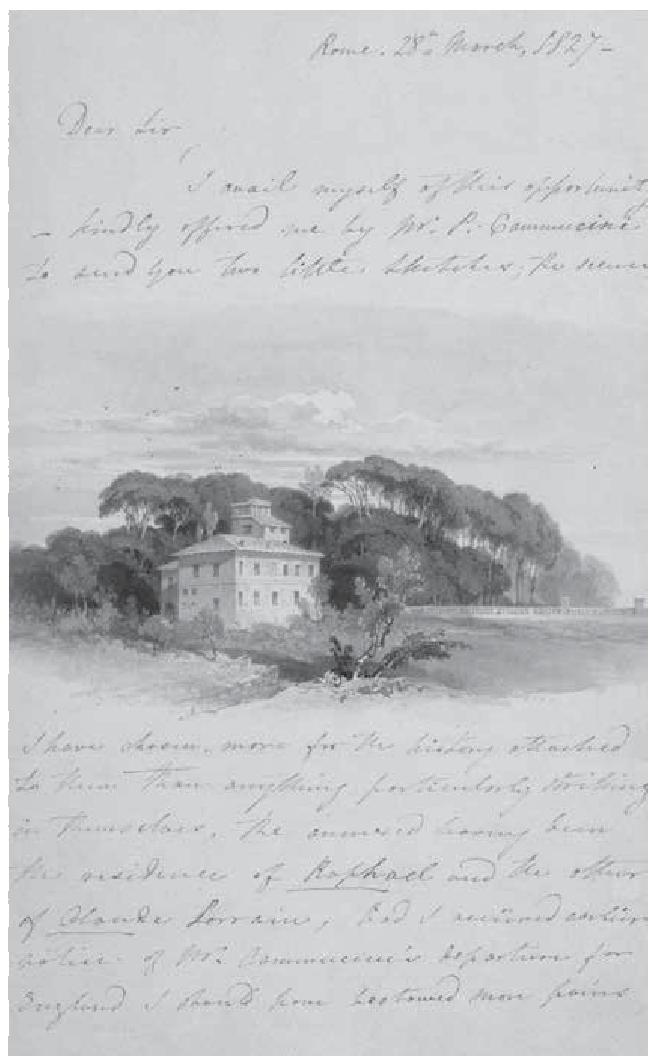 Rome. 28th March, 1827 –
Dear Sir,
I avail myself of this opportunity
– kindly offered me by Mr. P. Cammucini
to send you two little sketches, the scenes
I have chosen more for the history attached
to them than anything particularly striking
in themselves, the annexed having been
the residence of Raphael and the other
of Claude Lorrain, had I received earlier
notice of Mr. Cammucini's departure for
England I should have bestowed more pains